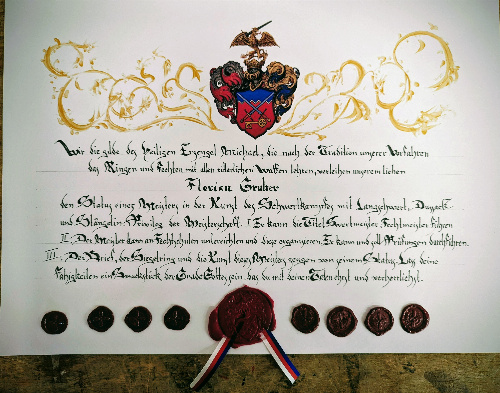 Wir die gilde des Heiligen Erzengel Michael, die nach der Tradition unserer Vorfahren
das Ringen und Fechten mit allen ritterlichen Waffen lehren, verleihen unserem lieben
Florian Gruber
den Status eines Meisters in der Kunst des Schwertkampfes mit Langschwert, Dussack
und Stänglein. Privileg der Meisterschaft: I. Er kann die Titel Swertmeister Fechtmeister führen
II. Der Meister kann an Fechtschulen unterrichten und diese organisieren. Er kann und soll Prüfungen durchführen.
III. Der Brief, der Siegelring und die Kunst dieses Meisters zeugen von seinem Status. Lass deine
Fähigkeiten ein Smuckstück der Gnade Gottes sein, das du mit deinen Taten ehrst und verherrlichst.